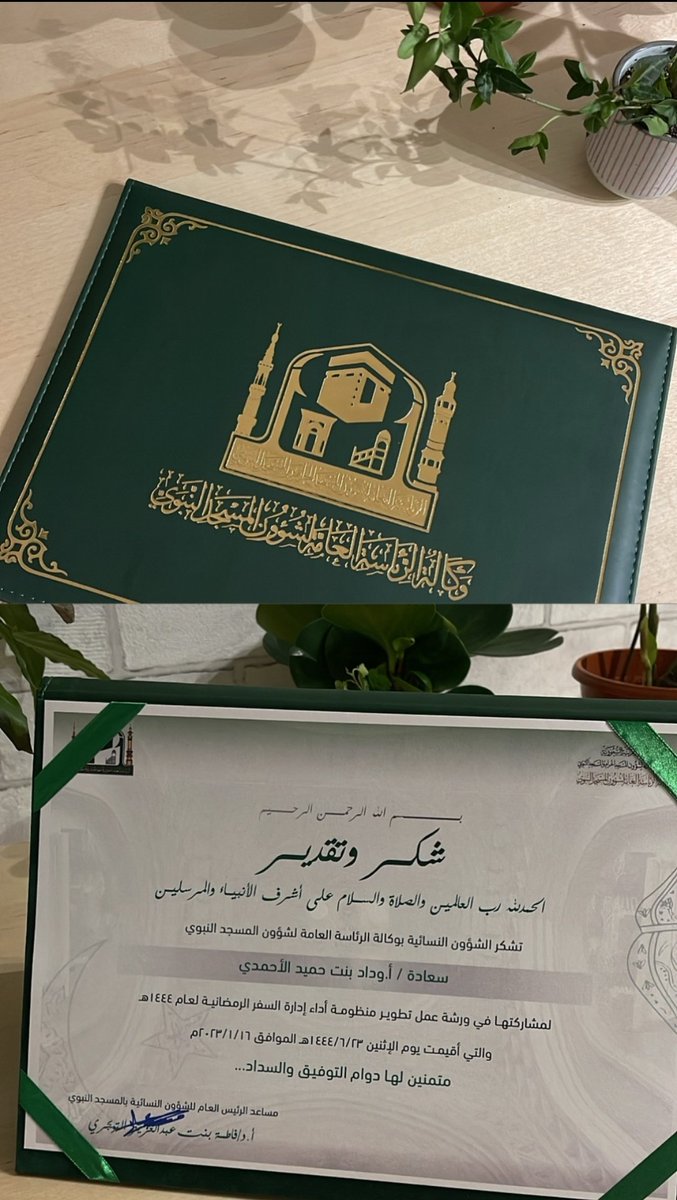 وكالة الرئاسة العامة لشؤون المسجد النبوي
بسم الله الرحمن الرحيم
شكر وتقدير
الحمدلله رب العالمين والصلاة والسلام على أشرف الأنبياء والمرسلين
تشكر الشؤون النسائية بوكالة الرئاسة العامة لشؤون المسجد النبوي
سعادة / أ.وداد بنت حميد الأحمدي
لمشاركتها في ورشة عمل تطوير منظومة أداء إدارة السفر الرمضانية لعام ١٤٤٤هـ
والتي أقيمت يوم الإثنين ١٤٤٤/٦/٢٣هـ الموافق ٢٠٢٣/١/١٦م
متمنين لها دوام التوفيق والسداد...
مساعد الرئيس العام للشؤون النسائية بالمسجد النبوي
أ.د/فاطمة بنت عبدالعزيز التويجري